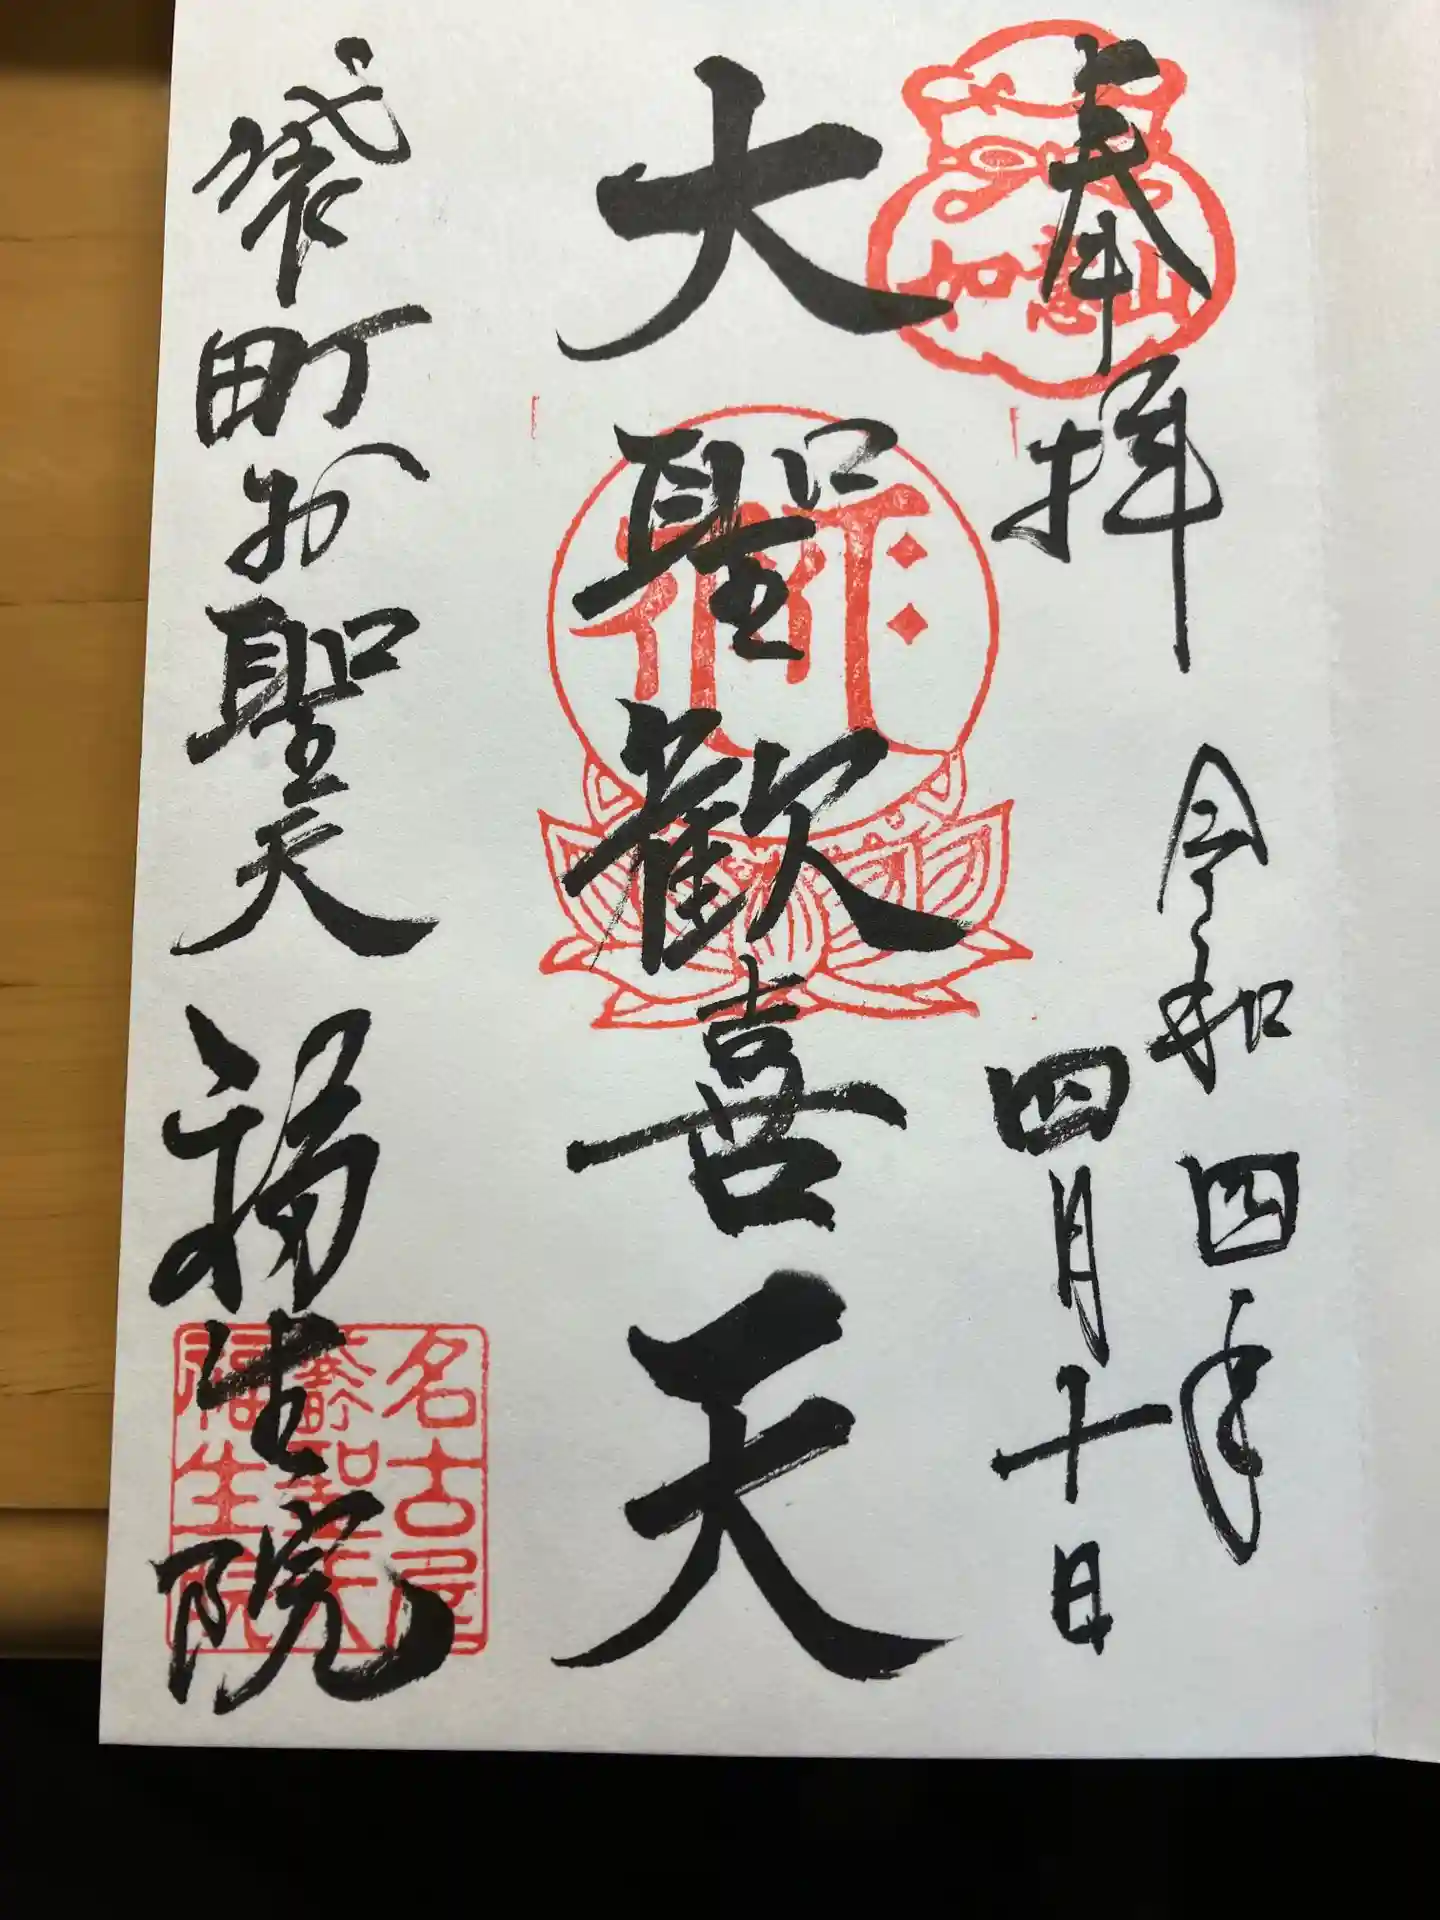 奉拝
如意山
令和四年
四月十日
大聖歓喜天
袋町お聖天
福生院
名古屋
聖天
福生院